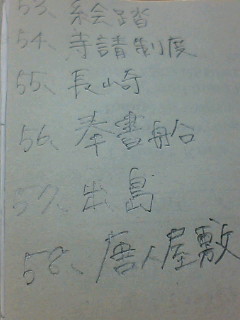 53、絵踏
54、寺請制度
55、長崎
56、奉書船
57、出島
58、唐人屋敷